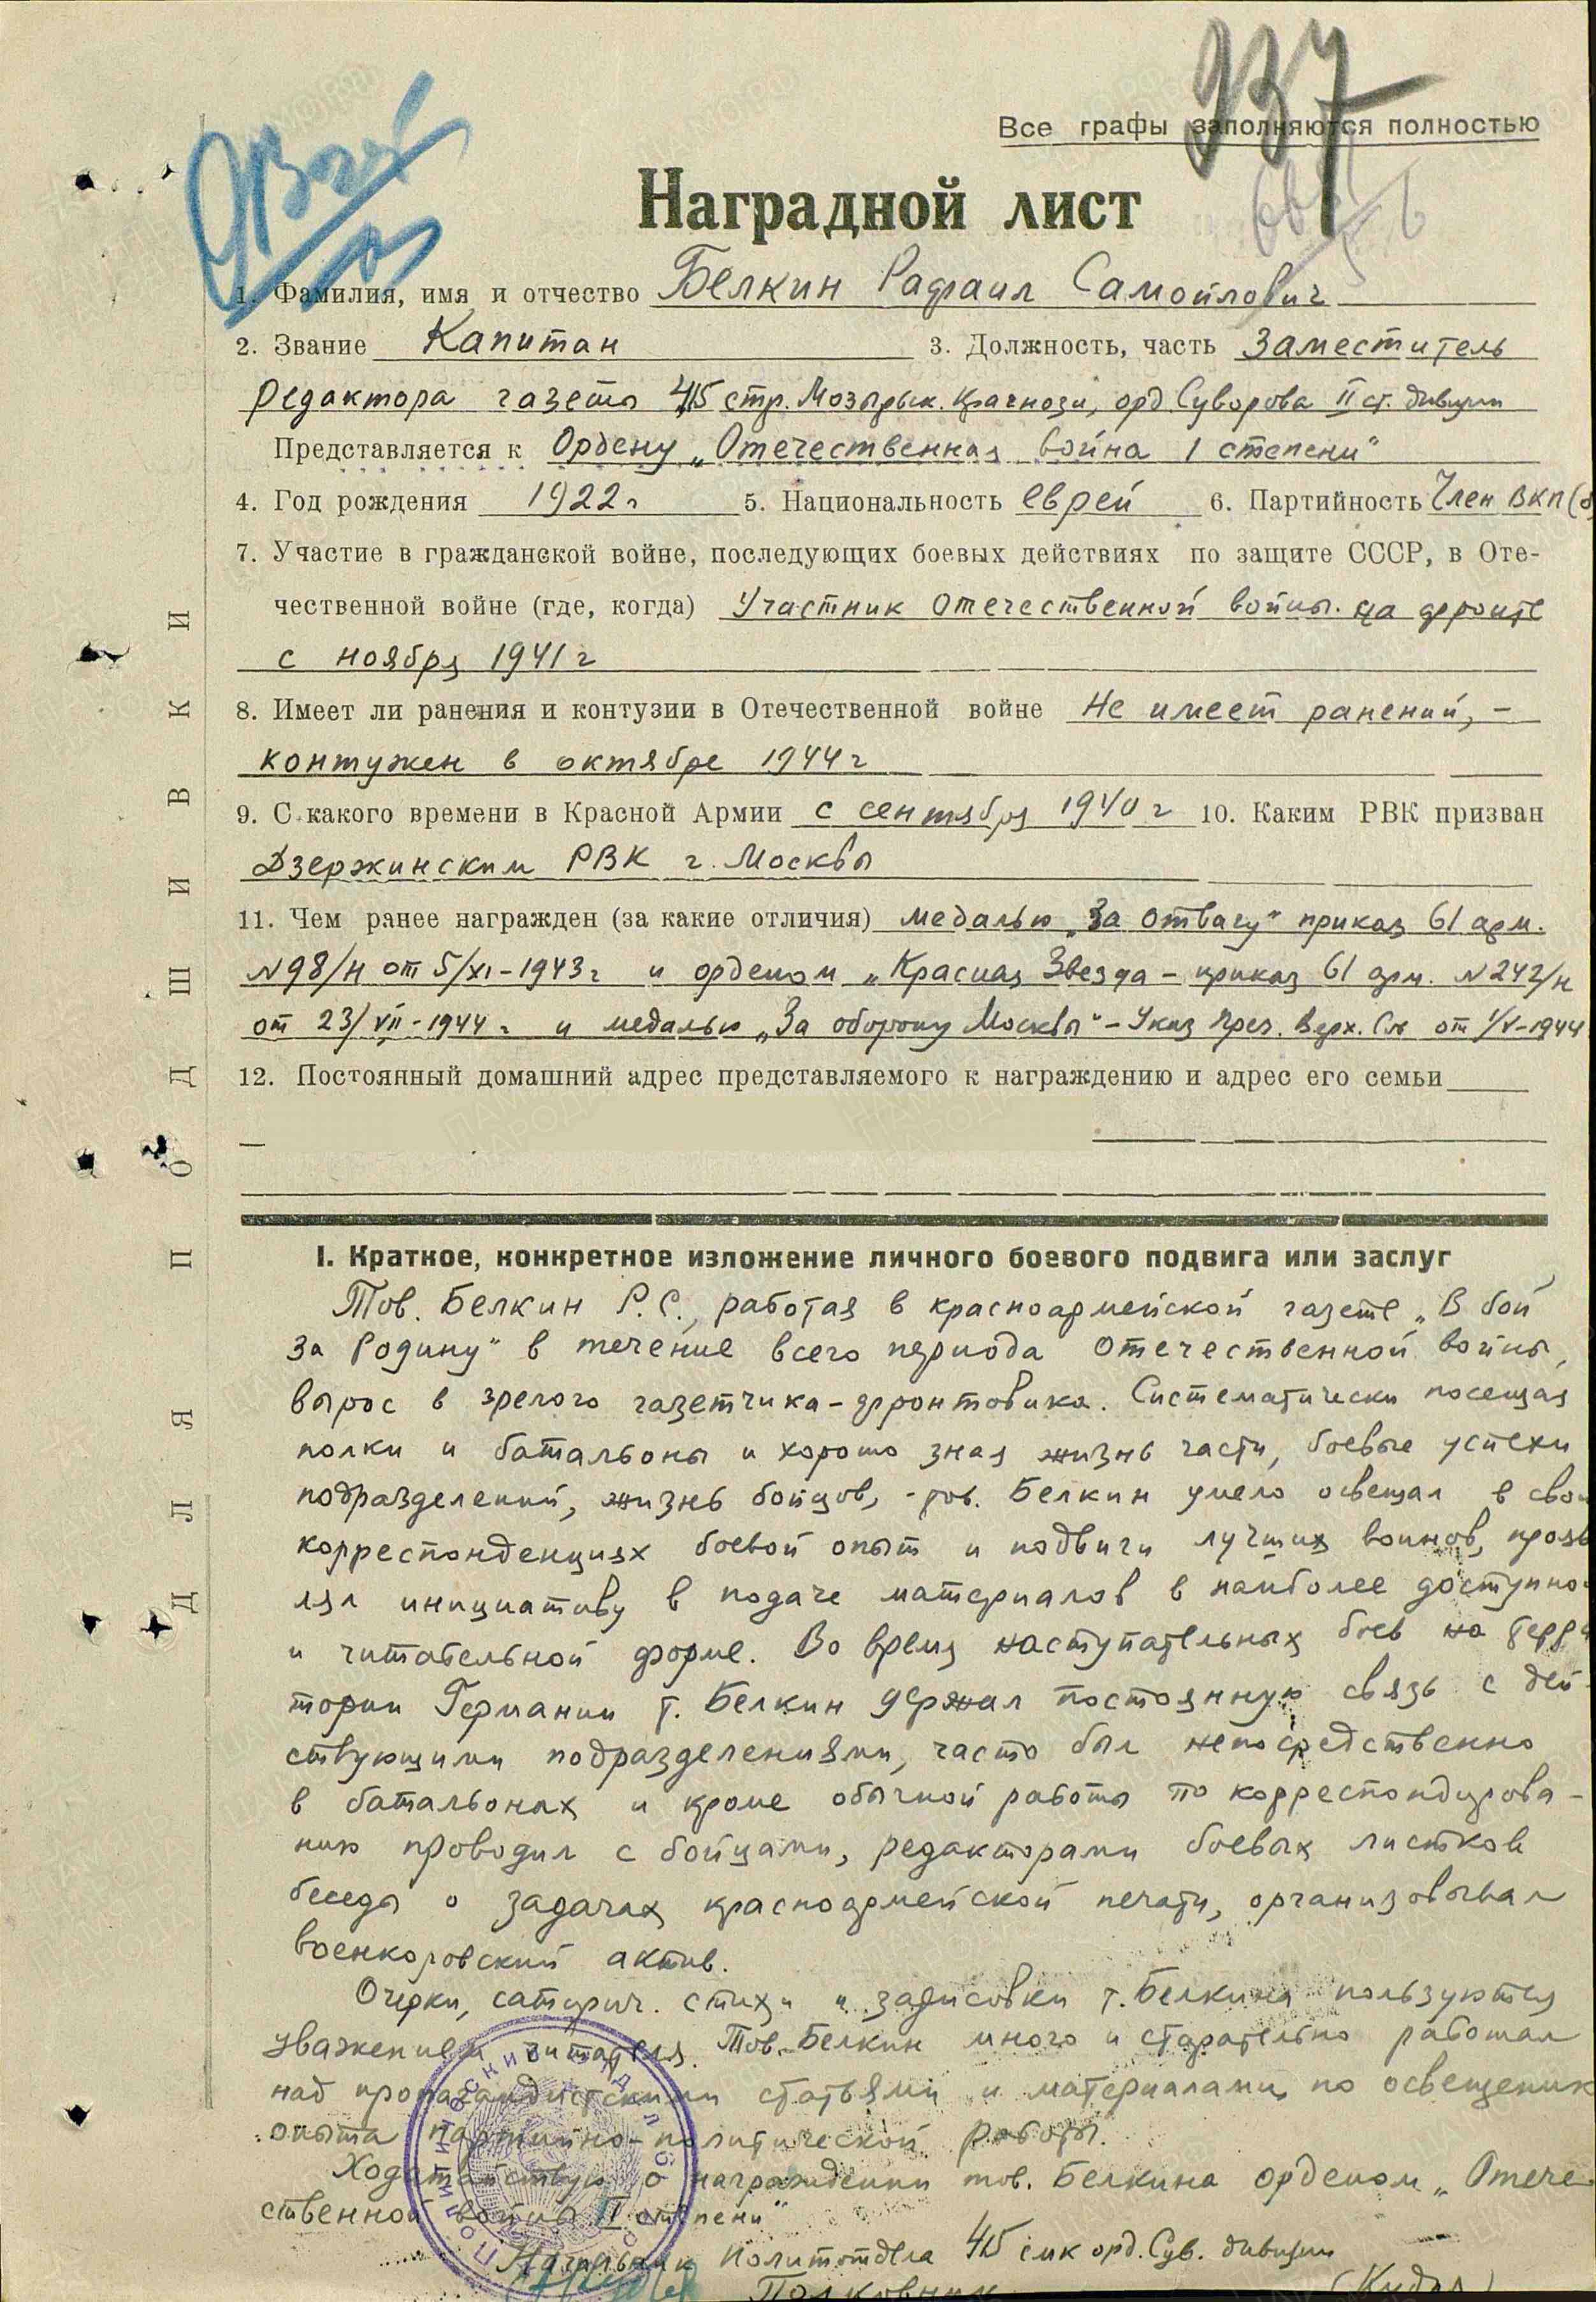 937
Все графы заполняются полностью
Наградной лист
1. Фамилия, имя и отчество Белкин Рафаил Самойлович
2. Звание Капитан 3. Должность, часть Заместитель
редактора газеты 415 стр. Мозырьск. Краснозн, орд. Суворова II ст. дивизии
Представляется к Ордену „Отечественная война I степени"
4. Год рождения 1922 г 5. Национальность еврей 6. Партийность Член ВКП(б
7. Участие в гражданской войне, последующих боевых действиях по защите СССР, в Оте-
чественной войне (где, когда) Участник Отечественной войны. на фронте
с ноября 1941 г
8. Имеет ли ранения и контузии в Отечественной войне Не имеет ранений, –
контужен в октябре 1944 г
9. С какого времени в Красной Армии с сентября 1940 г 10. Каким РВК призван
Дзержинским РВК г. Москвы
11. Чем ранее награжден (за какие отличия) медалью „За отвагу" приказ 61 арм.
№ 98/н от 5/XI-1943 г и орденом „Красная Звезда – приказ 61 арм. № 242/н
от 23/VII-1944 г и медалью „За оборону Москвы" – Указ През. Верх. Св от 1/V-1944
12. Постоянный домашний адрес представляемого к награждению и адрес его семьи
ДЛЯ ПОДШИВКИ
I. Краткое, конкретное изложение личного боевого подвига или заслуг
Тов. Белкин Р.С., работая в красноармейской газете „В бой
за Родину" в течение всего периода Отечественной войны,
вырос в зрелого газетчика-фронтовика. Систематически посещая
полки и батальоны и хорошо зная жизнь части, боевые успехи
подразделений, жизнь бойцов, - тов. Белкин умело освещал в свои
корреспонденциях боевой опыт и подвиги лучших воинов, прояв
лял инициативу в подаче материалов в наиболее доступно
и читабельной форме. Во время наступательных боев на терри
тории Германии т. Белкин держал постоянную связь с дей-
ствующими подразделениями, часто был непосредственно
в батальонах и кроме обычной работы по корреспондирова-
нию проводил с бойцами, редакторами боевых листков
беседы о задачах красноармейской печати, организовывал
военкоровский актив.
Очерки, сатирич. стихи и зарисовки т. Белкина пользуются
уважением читателя. Тов. Белкин много и старательно работал
над пропагандистскими статьями и материалами по освещению
опыта партийно-политической работы.
Ходатайствую о награждении тов. Белкина орденом „Отече-
ственной войны II степени"
Начальник Политотдела 415 смк орд. Сув. дивизии
Полковник